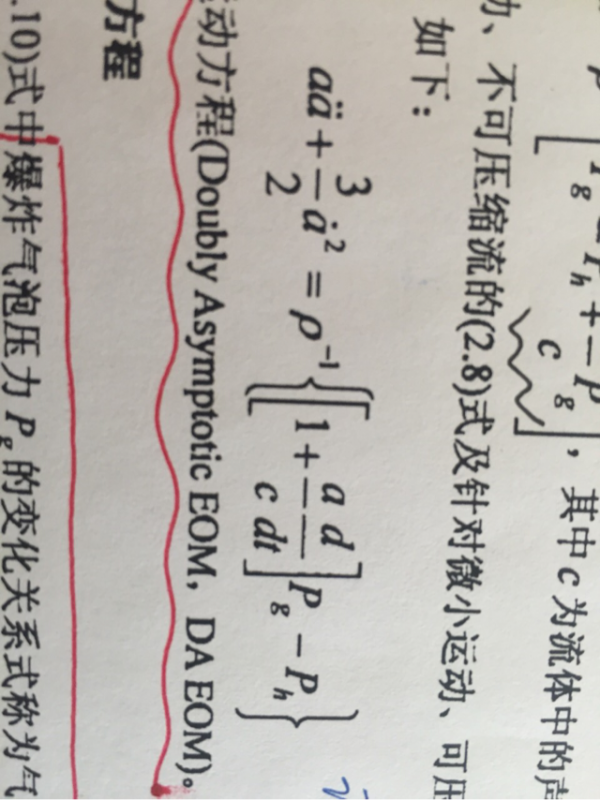 ，其中c为流体中的声
动、不可压缩流的(2.8)式及针对微小运动、可压
如下：
aä + 3/2 ȧ² = ρ⁻¹{[1 + a/c d/dt]P_g − P_h}
动方程(Doubly Asymptotic EOM，DA EOM)。
方程
.10)式中爆炸气泡压力 P_g 的变化关系式称为气